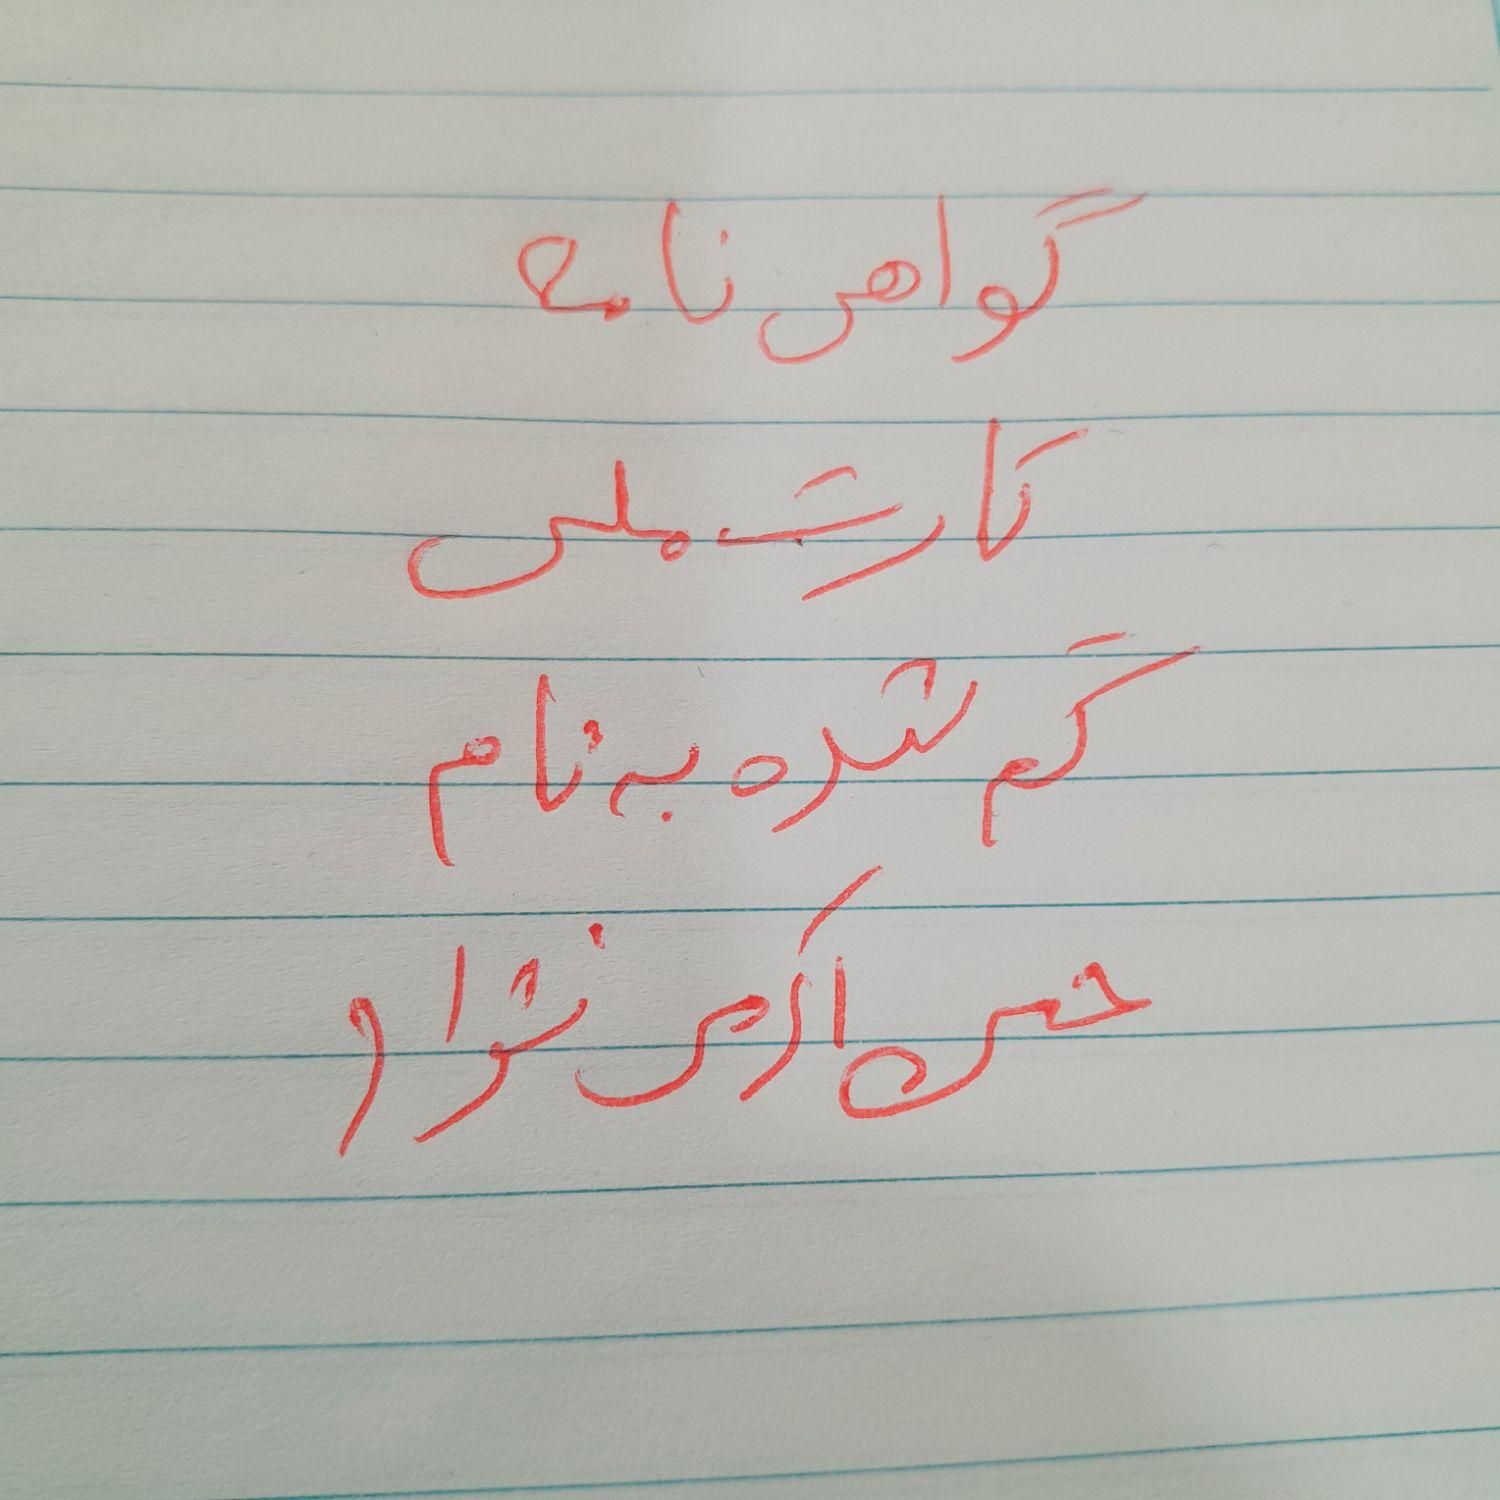 گواهی نامه
کارت ملی
گم شده به نام
حسن اکرمی نژاد